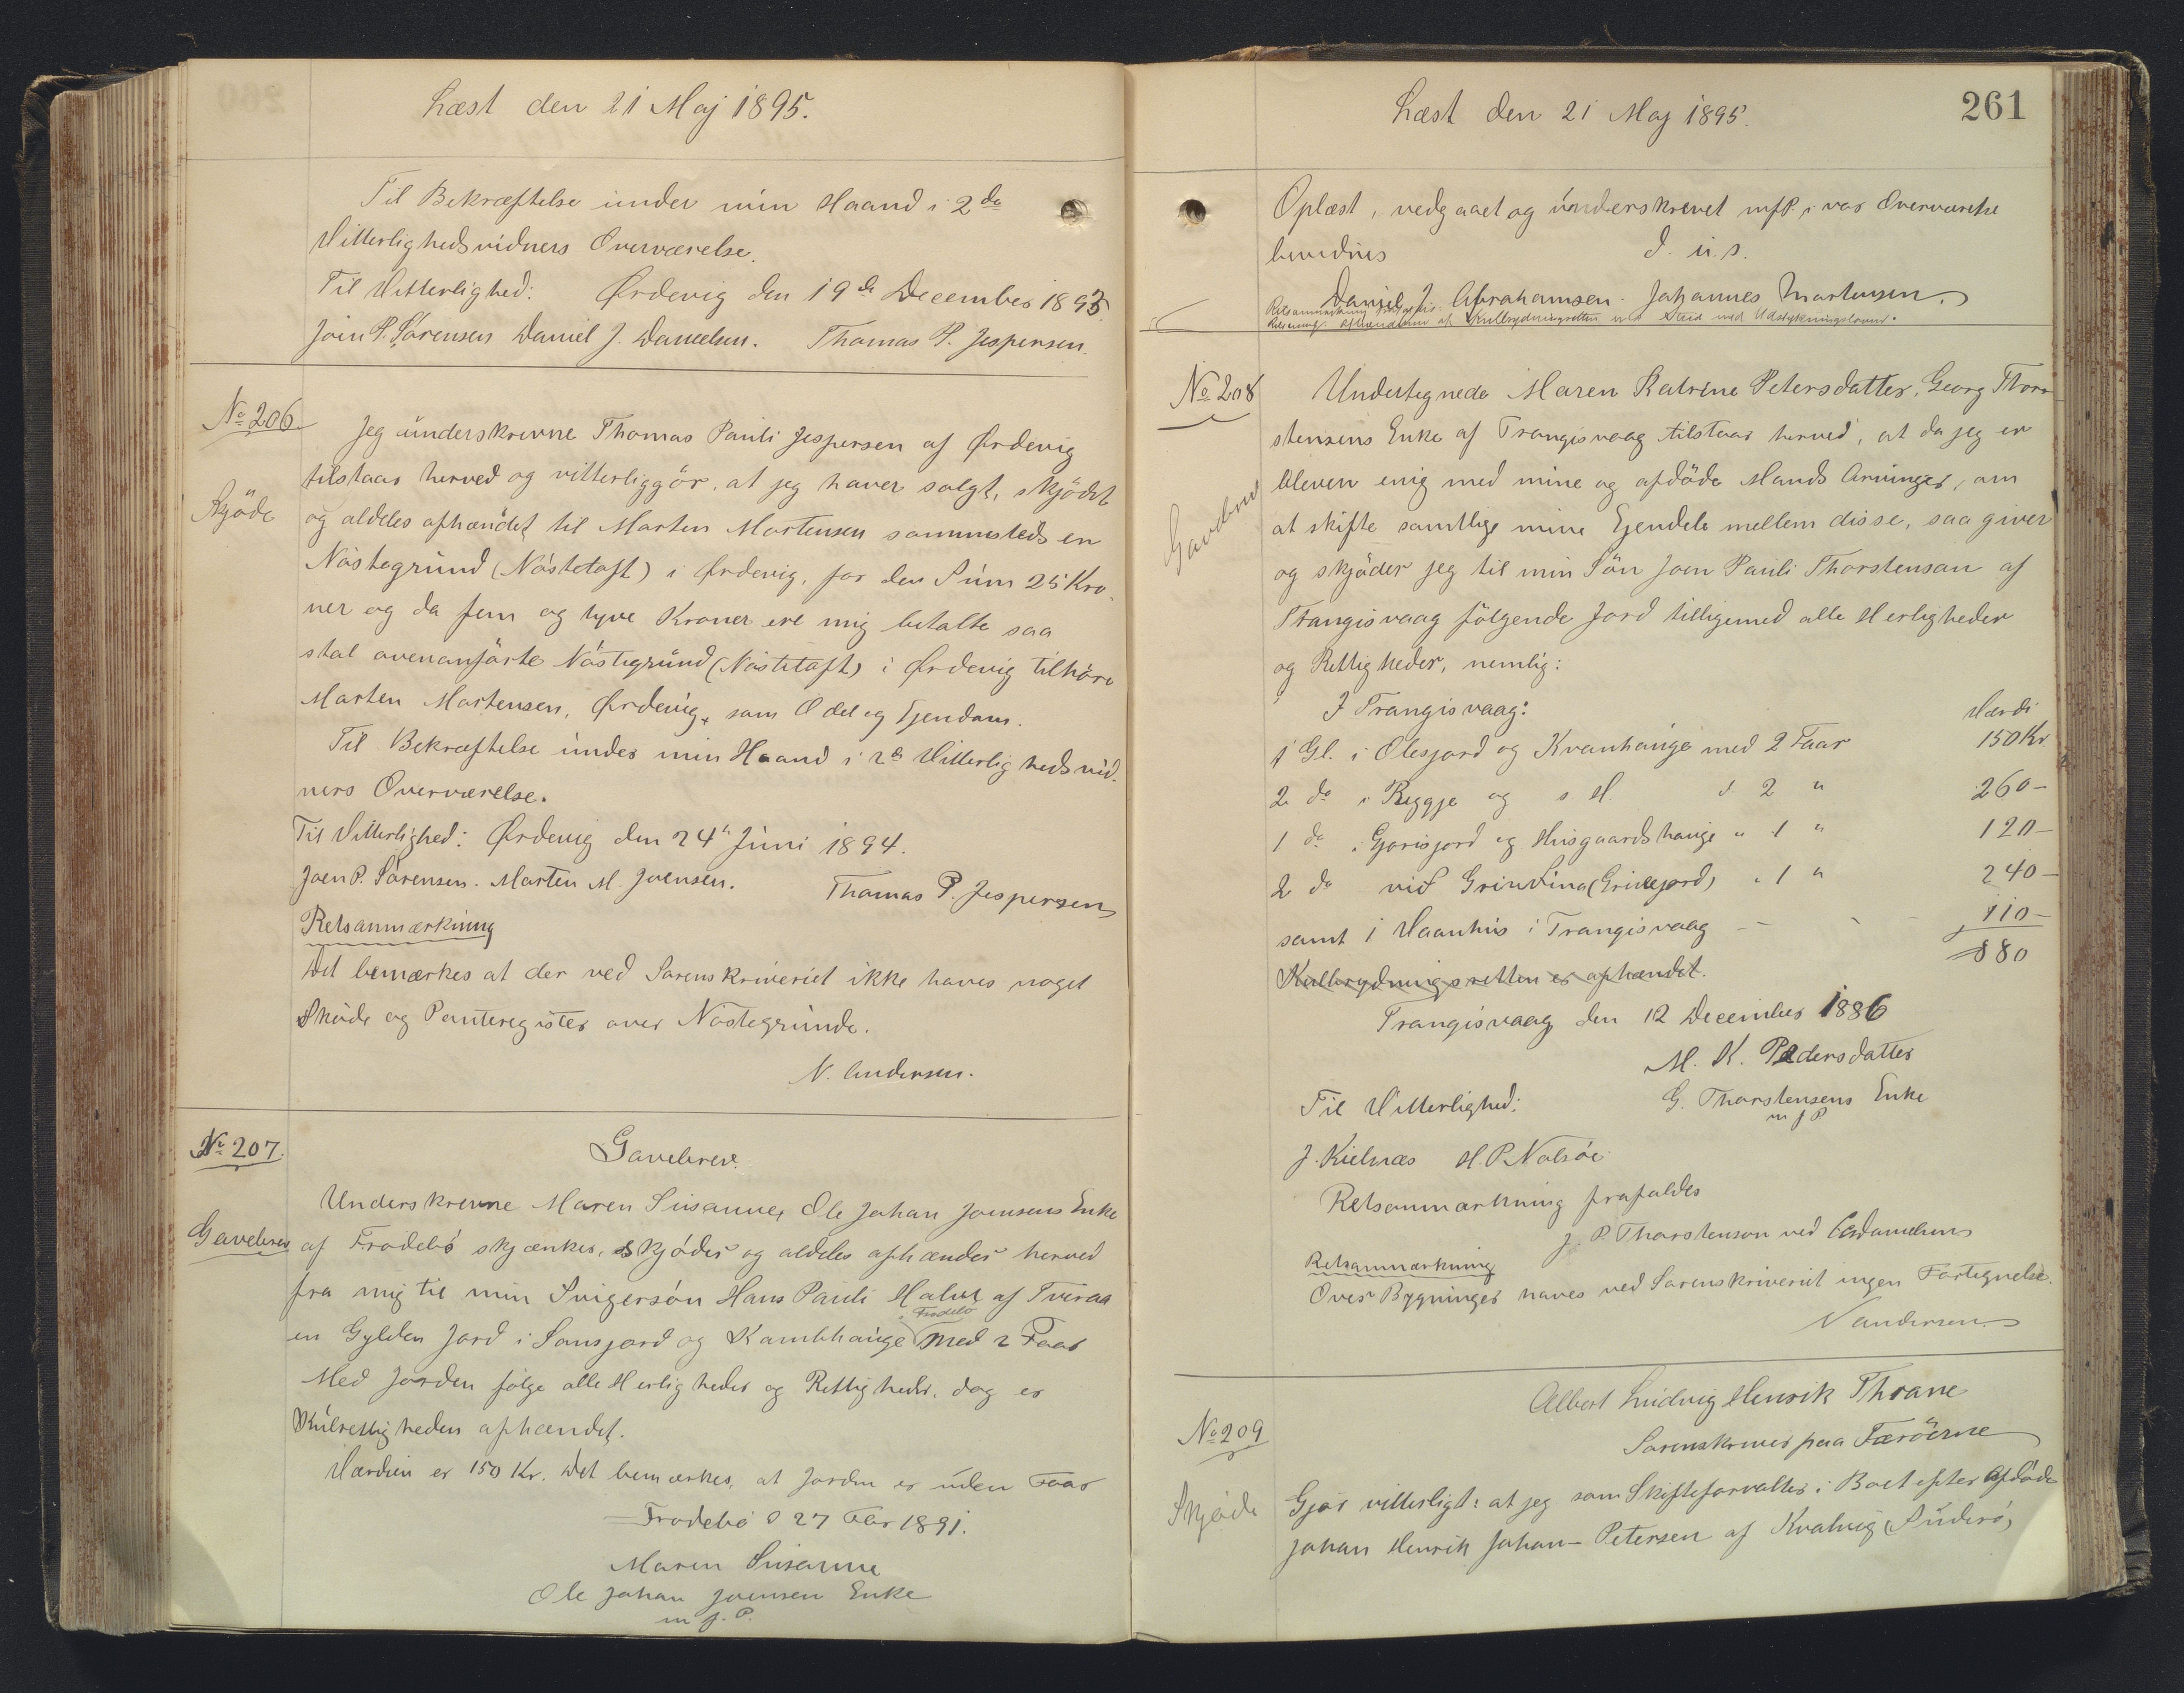 Læst den 21 Maj 1895.
Til Bekræftelse under min Haand i 2de
Vitterlighedsvidners Overværelse.
Til Vitterlighed: Ørdevig den 19de December 1893
Join P. Sørensen Daniel J. Danielsen. Thomas P. Jespersen.
No 206.
Skjöde
Jeg underskrevne Thomas Pauli Jespersen af Ørdevig
tilstaar herved og vitterliggör, at jeg haver solgt, skjödet
og aldeles afhændet til Morten Mortensen sammesteds en
Nöstegrund (Nöstetoft) i Ørdevig, for den Sum 25 Kro-
ner og da fem og tyve Kroner ere mig betalte saa
skal ovenanförte Nöstegrund (Nöstetoft) i Ørdevig tilhöre
Marten Mortensen, Ørdevig, som Odel og Ejendom.
Til Bekræftelse under min Haand i 2de Vitterlighedsvid-
ners Overværelse.
Til Vitterlighed: Ørdevig den 24de Juni 1894.
Joen P. Sörensen. Marten M. Joensen. Thomas P. Jespersen
Retsanmærkning
Det bemærkes at der ved Sorenskriveriet ikke haves noget
Sköde og Panteregister over Nöstegrunde.
N. Andersen.
No 207.
Gavebrev
Gavebrev.
Underskrevne Maren Susanne, Ole Johan Joensens Enke
af Frodebö skjænker, skjöder og aldeles afhænder herved
fra mig til min Svigersön Hans Pauli Holm af Tveraa
i Frodebö
en Gylden Jord i Sansjord og Kambhauge med 2 Faar
Med Jorden fölge alle Herligheder og Rettigheder, dog er
Kulrettigheden afhændet.
Værdien er 150 Kr. Det bemærkes, at Jorden er uden Faar
Frodebö d 27 Febr 1891.
Maren Susanne
Ole Johan Joensen Enke
m f. P.
Læst den 21 Maj 1895.
261
Oplæst, vedgaaet og underskrevet mfP. i vor Overværelse
bevidnes d. u. s.
Daniel J. Abrahamsen. Johannes Martensen.
Afhændelsen af Kulbrydningsretten Strid med Udstykningsloven.
No 208
Gavebrev
Undertegnede Maren Katrine Petersdatter, Georg Thor-
stensens Enke af Trangisvaag tilstaar herved, at da jeg er
bleven enig med mine og afdöde Mands Arvinger, om
at skifte samtlige mine Ejendele mellem disse, saa giver
og skjöder jeg til min Sön Joen Pauli Thorstenson af
Trangisvaag fölgende Jord tilligemed alle Herligheder
og Rettigheder, nemlig:
I Trangisvaag: Værdi
1 Gl. i Olesjord og Kvanhauge med 2 Faar 150 Kr
2 do i Ryggje og s. H. d 2 " 260 -
1 do i Gjorisjord og Husgaardshauge " 1 " 120 -
2 do við Grindina (Grivejord) " 1 " 240 -
samt 1 Vaanhus i Trangisvaag - - 110 -
880
Kulbrydningsretten er afhændet.
Trangisvaag den 12 December 1886
M. K. Pedersdatter
Til Vitterlighed: G. Thorstensens Enke
m f P
J. Kielnæs H. P. Nolsöe
Retsanmærkning frafaldes
J. P. Thorstenson ved
Retsanmærkning
Over Bygninger haves ved Sorenskriveriet ingen Fortegnelse.
N Andersen
No 209
Skjöde
Albert Ludvig Henrik Thrane
Sorenskriver paa Færöerne
Gjör vitterligt: at jeg som Skifteforvalter i Boet efter afdöde
Johan Henrik Johan-Petersen af Kvalvig (Suderö)